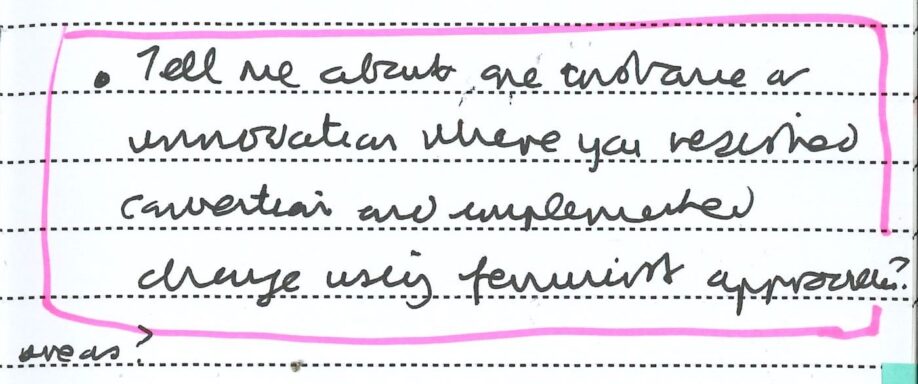 • Tell me about one instance or
innovation where you resisted
convention and implemented
change using feminist approaches?
areas?